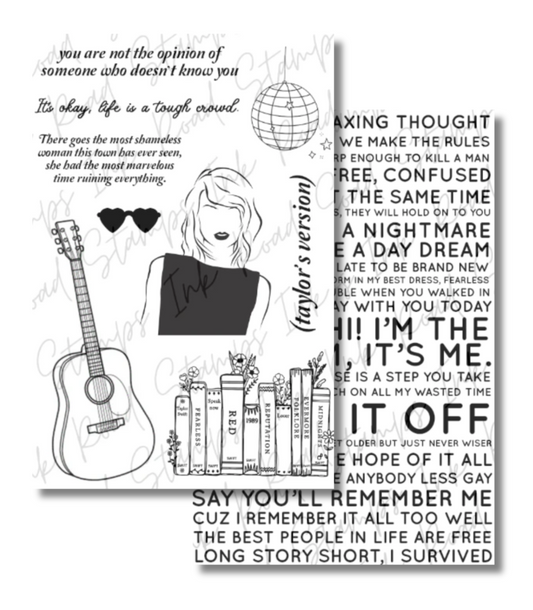 you are not the opinion of
someone who doesn't know you
It's okay, life is a tough crowd.
There goes the most shameless
woman this town has ever seen,
she had the most marvelous
time ruining everything.
(taylor's version)
FEARLESS
RED
1989
REPUTATION
Lover
FOLKLORE
EVERMORE
MIDNIGHTS
AXING THOUGHT
WE MAKE THE RULES
RP ENOUGH TO KILL A MAN
FREE, CONFUSED
T THE SAME TIME
S, THEY WILL HOLD ON TO YOU
A NIGHTMARE
E A DAY DREAM
LATE TO BE BRAND NEW
ORM IN MY BEST DRESS, FEARLESS
BLE WHEN YOU WALKED IN
AY WITH YOU TODAY
HI! I'M THE
M, IT'S ME.
SE IS A STEP YOU TAKE
CH ON ALL MY WASTED TIME
IT OFF
T OLDER BUT JUST NEVER WISER
E HOPE OF IT ALL
E ANYBODY LESS GAY
SAY YOU'LL REMEMBER ME
CUZ I REMEMBER IT ALL TOO WELL
THE BEST PEOPLE IN LIFE ARE FREE
LONG STORY SHORT, I SURVIVED
Ink Road Stamps